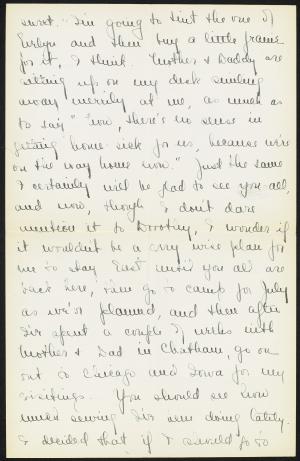 sweet." I'm going to tint the one of
Evelyn and then buy a little frame
for it, I think. Mother & Daddy are
sitting up on my desk smiling
away merrily at me, as much as
to say "now, there's no sense in
getting home-sick for us, because we're
on the way home now." Just the same
I certainly will be glad to see you-all,
and now, though I don't dare
mention it to Dorothy, I wonder if
it wouldn't be a very wise plan for
me to stay East until you all are
back here, I'm go to camp for July
as we'd planned, and then after
I've spent a couple of weeks with
Mother & Dad in Chatham, go on
out to Chicago and Iowa for my
visitings. You should see how
much sewing I've been doing lately.
I decided that if I should go to